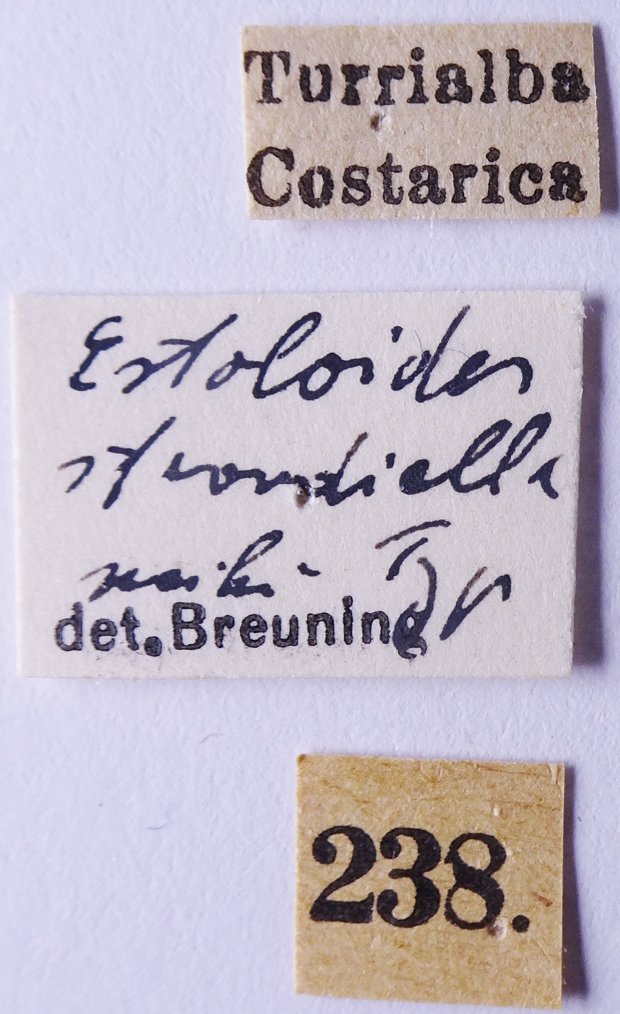 Turrialba
Costarica
Estoloides
strandiella
mihi Typ
det. Breuning
238.